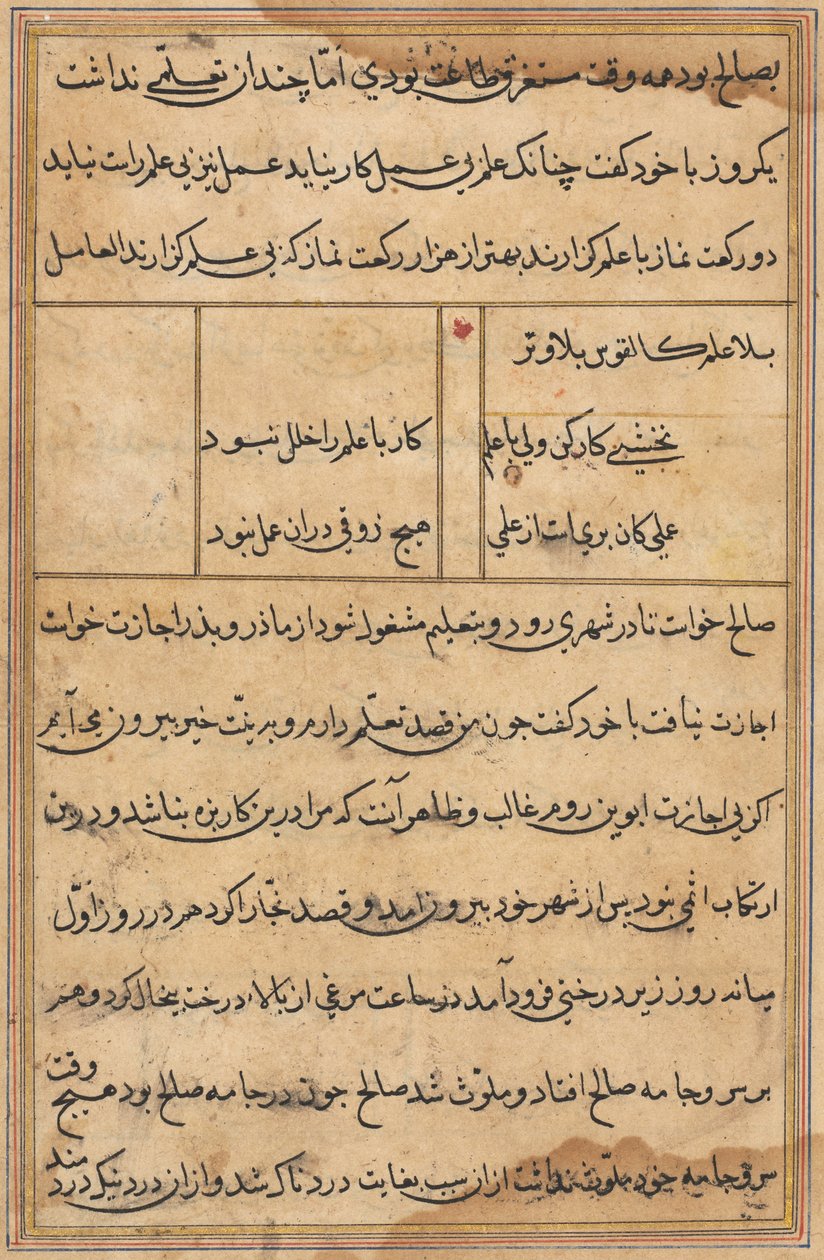 بصالح بود همه وقت مستغرق طاعت بودي اَمّا چندان تعلّمي نداشت
يكروز با خود كفت چنانك علم بي عمل كار نيايد عمل نيز بي علم راست نيايد
دو ركعت نماز با علم كزارند بهتر از هزار ركعت نماز كه بي علم كزارند العامل
بلا علم كالقوس بلا وتر
نخشبي كار كن ولي با علم كار با علم را خلل نبود
عملي كان بري است از علمي هيچ ذوقي دران عمل نبود
صالح خواست تا در شهري رود و بتعليم مشغول شود از ماذر و پذر اجازت خواست
اجازت نيافت با خود كفت جون من قصد تعلّم دارم و بدين نيّت خير بيرون مي آيم
اكر بي اجازت ابوين روم غالب و ظاهر آنست كه مرا درين كار بزه نباشد و درين
ارتكاب اثمي نبود پس از شهر خود بيرون آمد و قصد بخارا كرد هم در روز اَوّل
ميانه روز زير درختي فرود آمد در ساعت مرغي از بالاء درخت پيخال كرد و هم
بر سر و جامه صالح افتاد و ملوّث شد صالح جون در جامه صالح بود هيچ وقت
سر و جامه خود ملوّث نداشت ازان سبب بغايت دردناك شد و ازان درد نيك دردمند